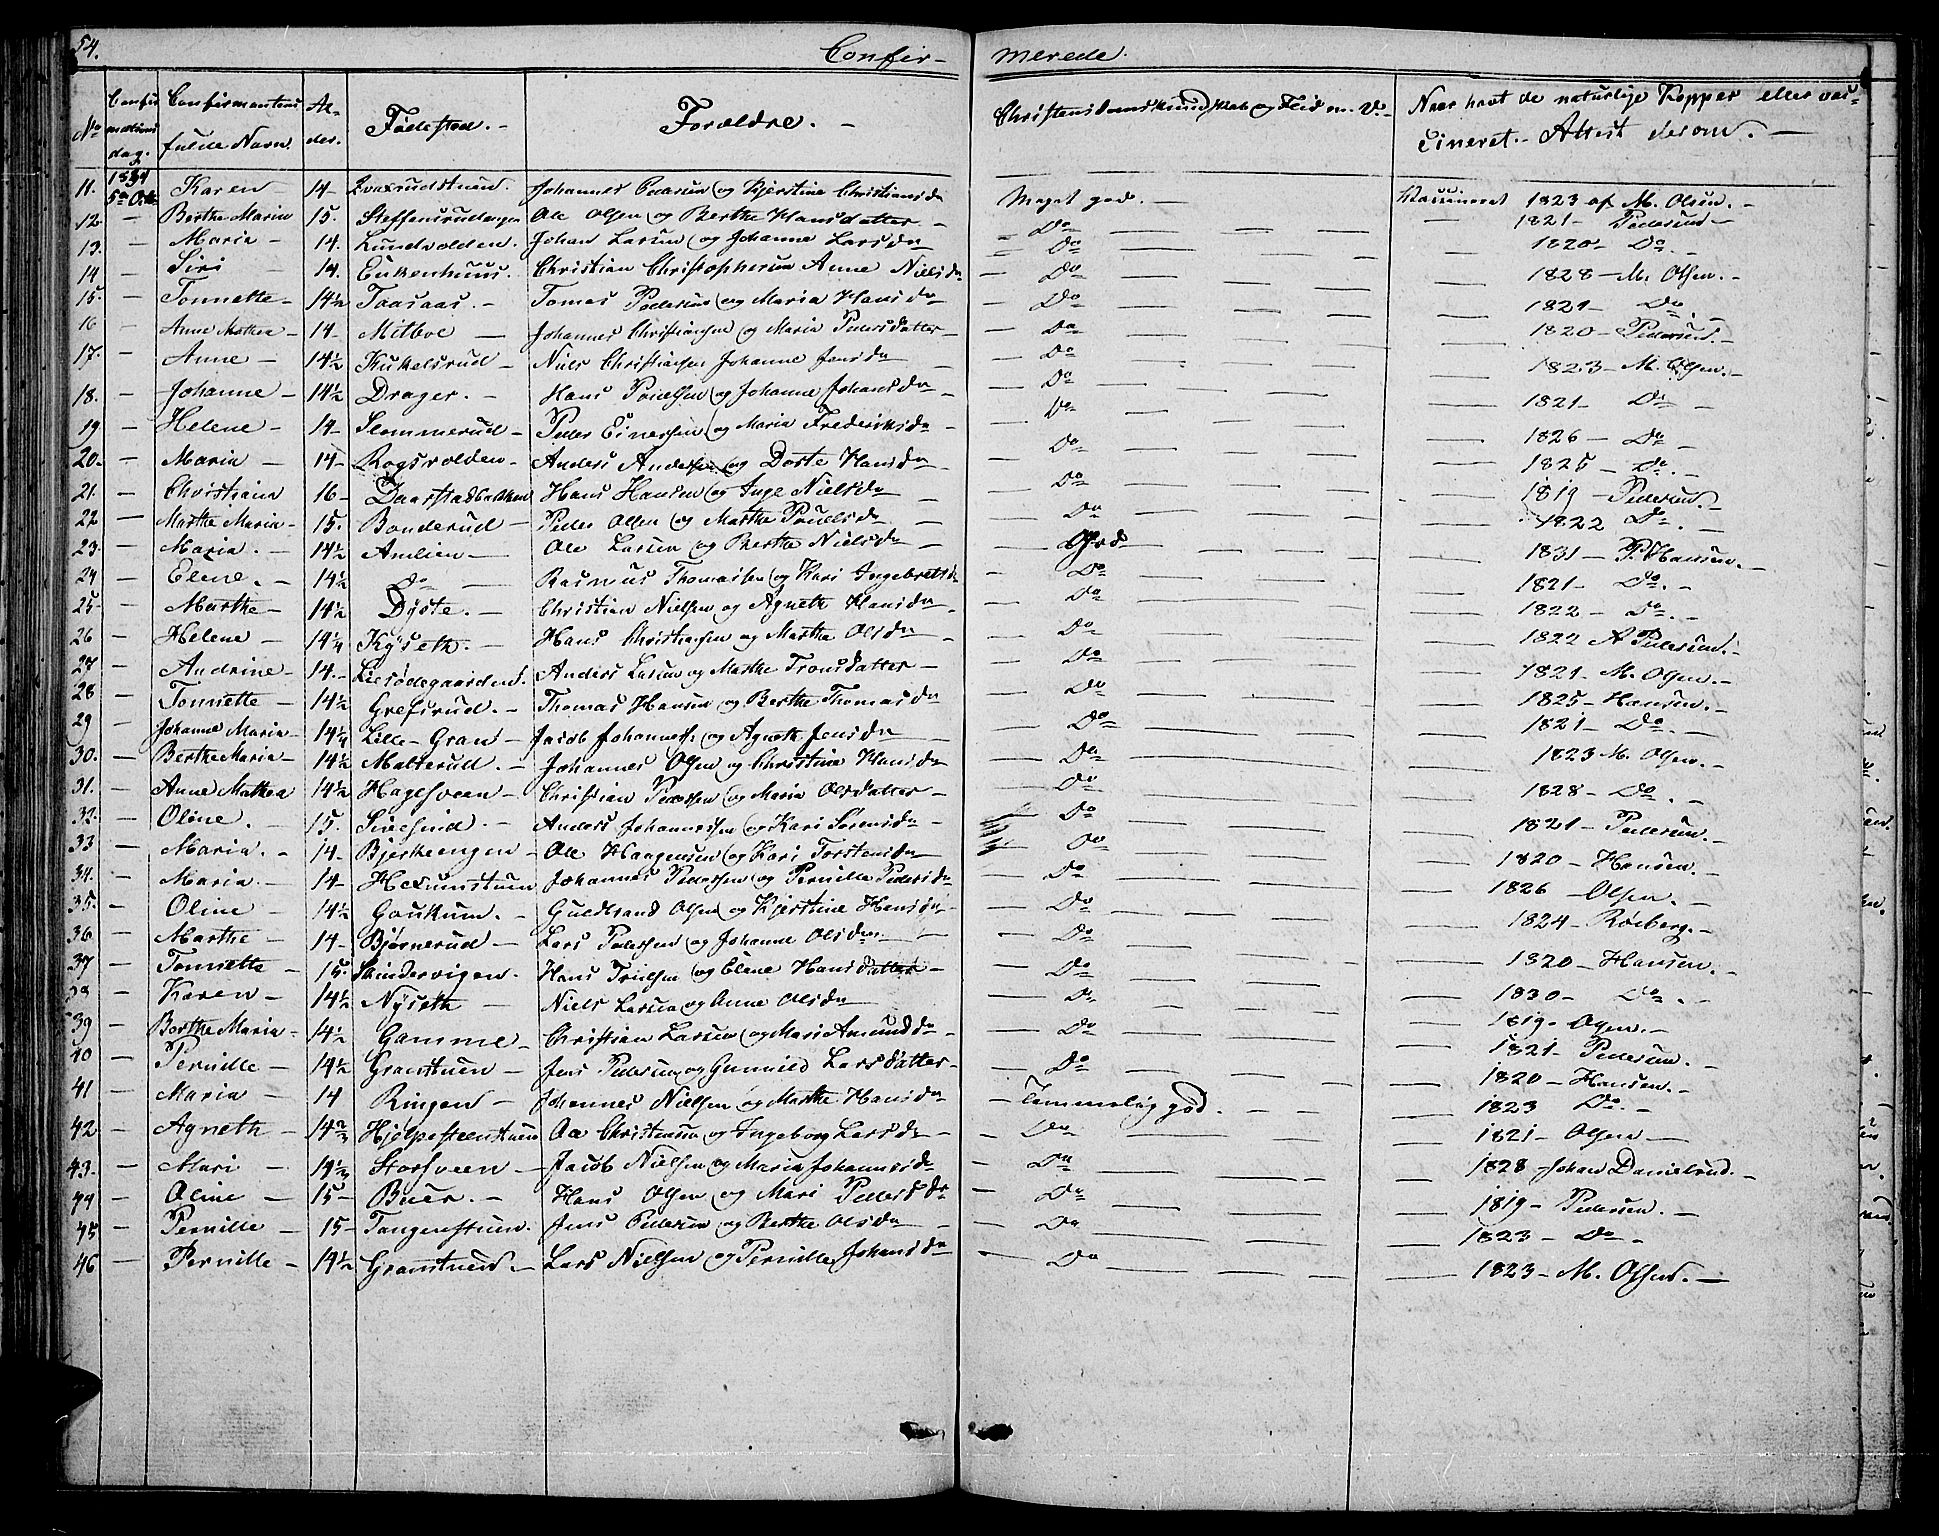 54. Confir- merede.
No Confirmations dag. Confirmantens fulde Navn. Al- der. Fødested. - Forældre. - Christendoms Kundskab og Flid m. V. - Naar havt de naturlige Kopper eller vac- cineret. - Attest derom. -
11. 1834 5te Oct. Karen - 14 - Johannes Pedersen og Kjerstine Christiansda Meget god. - Vaccineret 1823 af M. Olsen. -
12 - Berthe Maria 15. Steffensrudengen Ole Olsen og Berthe Hansdatter - Do - 1821 - Pedersen -
13. - Maria - 14. Lundvolden. Johan Larsen og Johanne Larsda - Do - 1820 - Do -
14 - Siri 14. Enkenhuus. Christian Christophersen Anne Nielsda - Do - 1828 - M. Olsen. -
15. - Tonnette - 14½ Taasaas. - Tomas Pedersen og Maria Hansda - Do - 1821 - Do. -
16 - Anne Mathea - 14 - Mitboe - Johannes Christiansen og Maria Pedersdatter - Do - 1820 - Pedersen. -
17. - Anne - 14½ Kukelsrud - Niels Christiansen Johanne Jensda - Do - 1823 - M. Olsen. -
18. - Johanne - 14½ Drager. - Hans Poulsen og Johanne Johansda - Do - 1821 - Do -
19 - Helene - 14 - Slommerud - Peder Einersen og Maria Frederiksda - Do - 1826 - Do -
20. - Maria - 14 - Rognvolden - Anders Andersen og Dorte Hansda - Do - 1825 - Do. -
21. - Christian 16 - Daarstadbakken Hans Hansen og Inge Nielsda - Do - 1819 - Pedersen. -
22 - Marthe Maria - 15. Bonderud - Peder Olsen og Marthe Poulsda - Do - 1822 Do. -
23. - Maria. - 14½ Amlien - Ole Larsen og Berthe Nielsda - God - 1831 - P. Hansen. -
24 - Elene. - 14½ Do - Rasmus Thomassen og Kari Ingebretsda - Do - 1821 - Do. -
25 - Marthe - 14½ Dyste. - Christian Nielsen og Agnethe Hansda - Do - 1822 - Do. -
26 - Helene - 14¼ Kyseth. - Hans Christiansen og Marthe Olsda - Do - 1822 A Pedersen. -
27 - Andrine - 14. - Lie Ødegaarden. Anders Larsen og Marthe Tronsdatter - Do - 1821 - M. Olsen. -
28 - Tonnette - 14½ Grefsrud. - Thomas Hansen og Berthe Thomasda Do - 1825 - Hansen. -
29 - Johanne Maria - 14¼ Lille - Gran - Jacob Johanness. og Agnethe Jensda - Do - 1821 - Do. -
30. - Berthe Maria - 14½ Malterud. - Johannes Olsen og Christine Hansda - Do - 1823 M. Olsen. -
31. - Anne Mathea 14½ Hagesveen - Christian Pedersen og Maria Olsdatter - Do - 1828 - Do. -
32. - Oline. - 15. - Anders Johannessen og Kari Sørensda - Do - 1821 - Pedersen. -
33 - Maria. - 14 - Bjerkeengen - Ole Haagensen og Kari Torstensda Do - 1820 - Hansen. -
34. - Maria. - 14 - Hexumstuen Johannes Pedersen og Pernille Pedersda - Do - 1826 - Olsen. -
35. - Oline - 14½ Gaukum. - Guldbrand Olsen og Kjerstine Hansda - Do - 1824 - Røeberg. -
36 - Marthe - 14 - Bjørnerud - Lars Pedersen og Johanne Olsda - Do - 1820 - Hansen. -
37 - Tonnette - 15. Sandervigen. Hans Truelsen og Elene Hansdatter - Do - 1830 - Do. -
38 - Karen - 14½ Nyseth - Niels Larsen og Anne Olsda - Do - 1819 - Olsen. -
39 - Berthe Maria - 14½ Gamme - Christian Larsen og Mari Amundda - Do - 1821 - Pedersen. -
40 - Pernille - 14½ Granstuen - Jens Pedersen og Gunnild Larsdatter - Do - 1820 - Hansen. -
41 - Maria - 14 Ringen - Johannes Nielsen og Marthe Hansda - Temmelig god. - 1823 Do. -
42 - Agneth - 14⅔ Hjelpesteenstuen Ole Christensen og Ingeborg Larsda - Do - 1821 - Olsen -
43. - Mari - 14½ Storsveen - Jacob Nielsen og Maria Johannesda - Do - 1828 - Johan Danielrud. -
44 - Oline - 15 - Buer. - Hans Olsen og Mari Pedersda - Do - 1819 - Pedersen. -
45 - Pernille - 15 - Tangenstuen. Jens Pedersen og Berthe Olsda - Do - 1823 - Do -
46 - Pernille - 14½ Granstuen. - Lars Nielsen og Pernille Johansda - Do - 1823 - M. Olsen. -